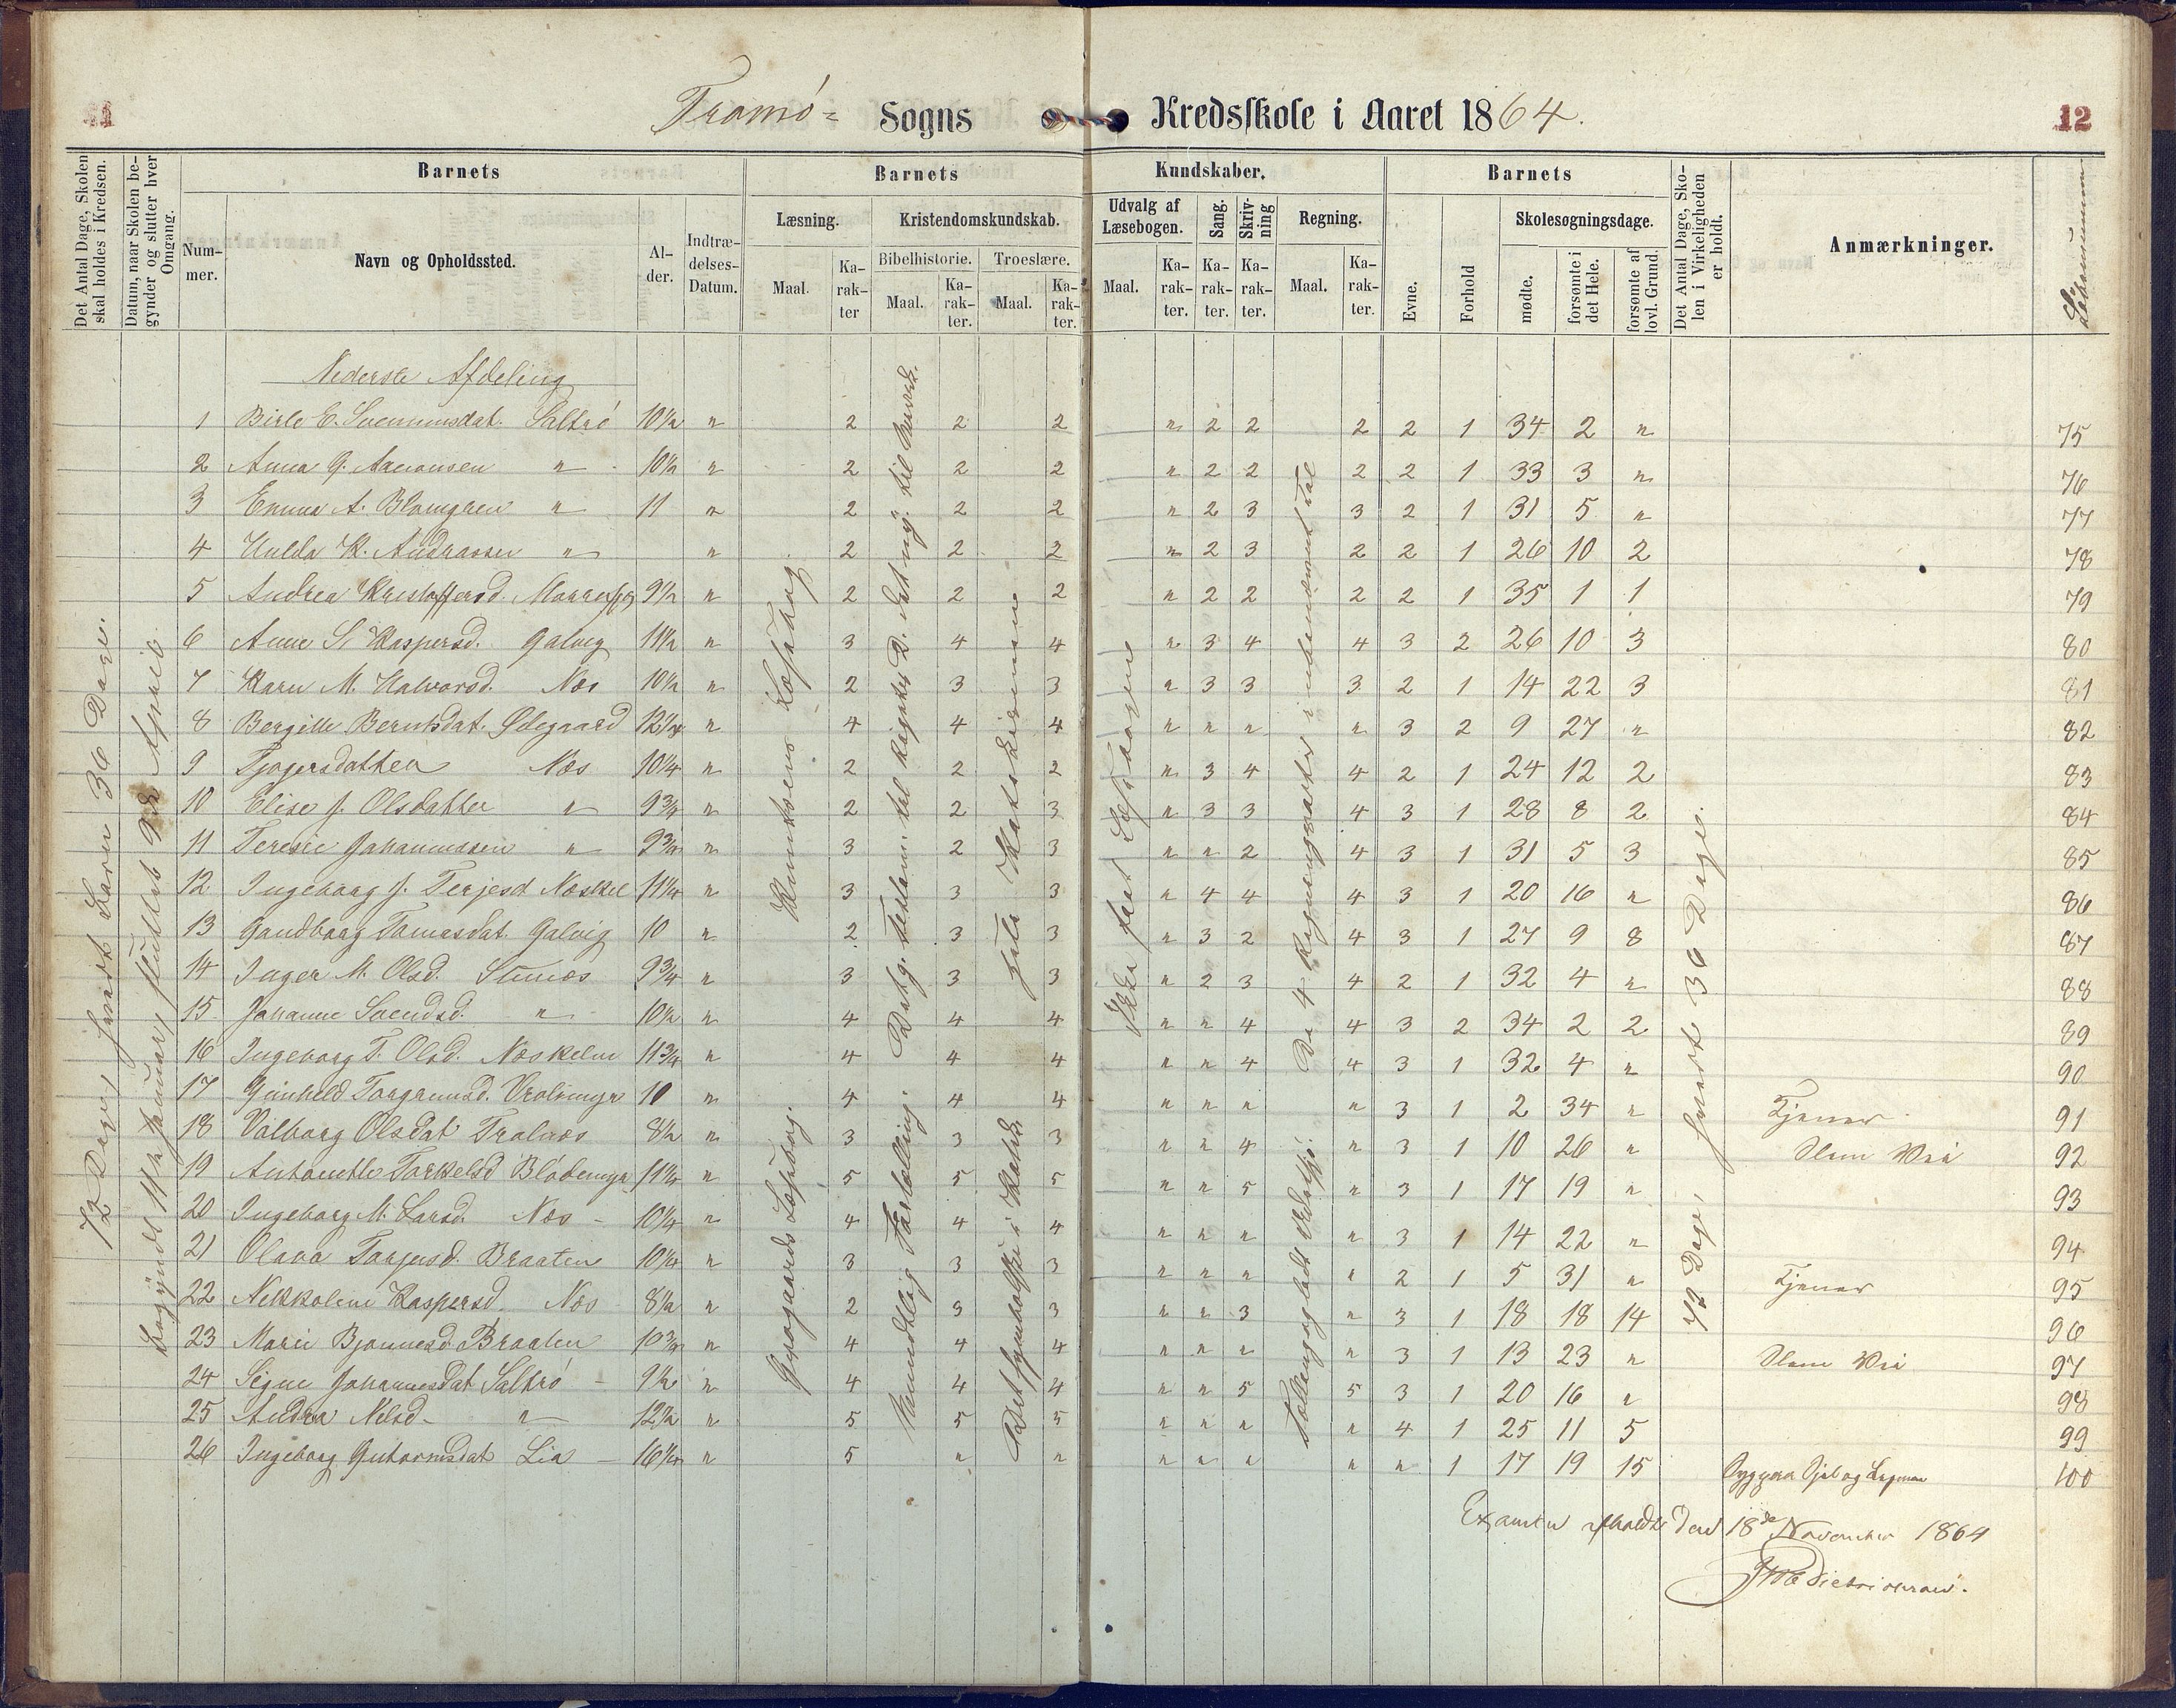 Tromø= Sogns Kredsskole i Aaret 1864.
12
Det Antal Dage, Skolen skal holdes i Kredsen.
Datum, naar Skolen begynder og slutter hver Omgang.
Barnets
Barnets
Kundskaber.
Barnets
Det Antal Dage, Skolen i Virkeligheden er holdt.
Anmærkninger.
Løbenummer
Nummer.
Navn og Opholdssted.
Alder.
Indtrædelses-Datum.
Læsning.
Kristendomskundskab.
Udvalg af Læsebogen.
Sang.
Skrivning
Regning.
Evne.
Forhold
Skolesøgningsdage.
Bibelhistorie.
Troeslære.
Maal.
Karakter
Maal.
Karakter.
Maal.
Karakter.
Maal.
Karakter.
Karakter.
Karakter.
Maal.
Karakter.
mødte.
forsømte i det Hele.
forsømte af lovl. Grund.
Nederste Afdeling
1 Birle E. Svennumsdat. Saltrø 10½ " 2 2 2 " 2 2 2 2 1 34 2 " 75
2 Anna G. Aanonsen " 10½ " 2 2 2 " 2 2 2 2 1 33 3 " 76
3 Emma A. Blomgren " 11 " 2 2 2 " 2 3 3 2 1 31 5 " 77
4 Hulda K. Andraasen " " 2 2 2 " 2 3 2 2 1 26 10 2 78
5 Andrea Kristoffersd. 9½ " 2 2 2 " 2 2 2 2 1 35 1 1 79
6 Anne S. Kaspersd. Galvig 11½ " 3 4 4 " 3 4 4 3 2 26 10 3 80
7 Karn M. Halvorsd. Næs 10½ " 2 3 3 " 3 3 3 2 1 14 22 3 81
8 Bergitte Berntsdat. Ødegaard 12¼ " 4 4 4 " " " " 3 2 9 27 " 82
9 Tjøgersdatter Næs 10¼ " 2 2 2 " 3 4 4 2 1 24 12 2 83
10 Elise J. Olsdatter " 9¾ " 2 2 3 " 3 3 4 3 1 28 8 2 84
11 Teresie Johannesen " 9¾ " 3 2 3 " " 2 4 3 1 31 5 3 85
12 Ingeborg J. Terjesd Næskil 11¼ " 3 3 3 " 4 4 4 3 1 20 16 " 86
13 Gundborg Tomasdat. Galvig 10 " 2 3 3 " 3 2 4 3 1 27 9 8 87
14 Inger M. Olsd. Stunæs 9¾ " 3 3 3 " 2 3 4 2 1 32 4 " 88
15 Johanne Svendsd. " 10½ " 4 4 4 " " 4 4 3 2 34 2 2 89
16 Ingeborg T. Olsd. Næskilen 11¾ " 4 4 4 " " 4 4 3 1 32 4 " 90
17 Gunhild Torgrimsd. Vrolsmyr 10 " 4 4 4 " " " " 3 1 2 34 " Tjener 91
18 Valborg Olsdat Tralnæs 8½ " 3 3 3 " " 4 " 3 1 10 26 " Slem Vei 92
19 Antonette Torkelsd Blødemyr 11½ " 5 5 5 " " 5 " 3 1 17 19 " 93
20 Ingeborg M. Larsd. Næs 10¼ " 4 4 4 " " " " 3 1 14 22 " 94
21 Olava Torjersd. Braaten 10¼ " 3 3 3 " " " " 2 1 5 31 " Tjener 95
22 Nekkoline Kaspersd. Næs 8½ " 2 3 3 " " 3 " 3 1 18 18 14 96
23 Marie Bjonnesd. Braaten 10¾ " 4 4 4 " " " " 3 1 13 23 " Slem Vei 97
24 Signe Johannesdat Saltrø 9½ " 4 4 4 " " 5 5 3 1 20 16 " 98
25 Andrea Nilsd. " 12½ " 5 5 5 " " " " 4 1 25 11 5 99
26 Ingeborg Gutormsdat Lia 16¼ " 5 " " " " " " " 1 17 19 15 100
72 Dage, hvert Barn 36 Dage.
Begyndt 11te Januar, sluttet 9de April.
72 Dage, hvert 36 Dage.
Examen afholdt den 18de November 1864